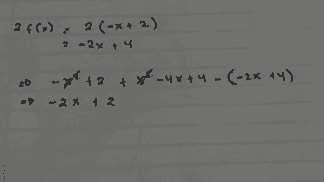 2 f(x) = 2 (-x + 2)
= -2x + 4
=> -x² + 2 + x² - 4x + 4 - (-2x + 4)
=> -2x + 2